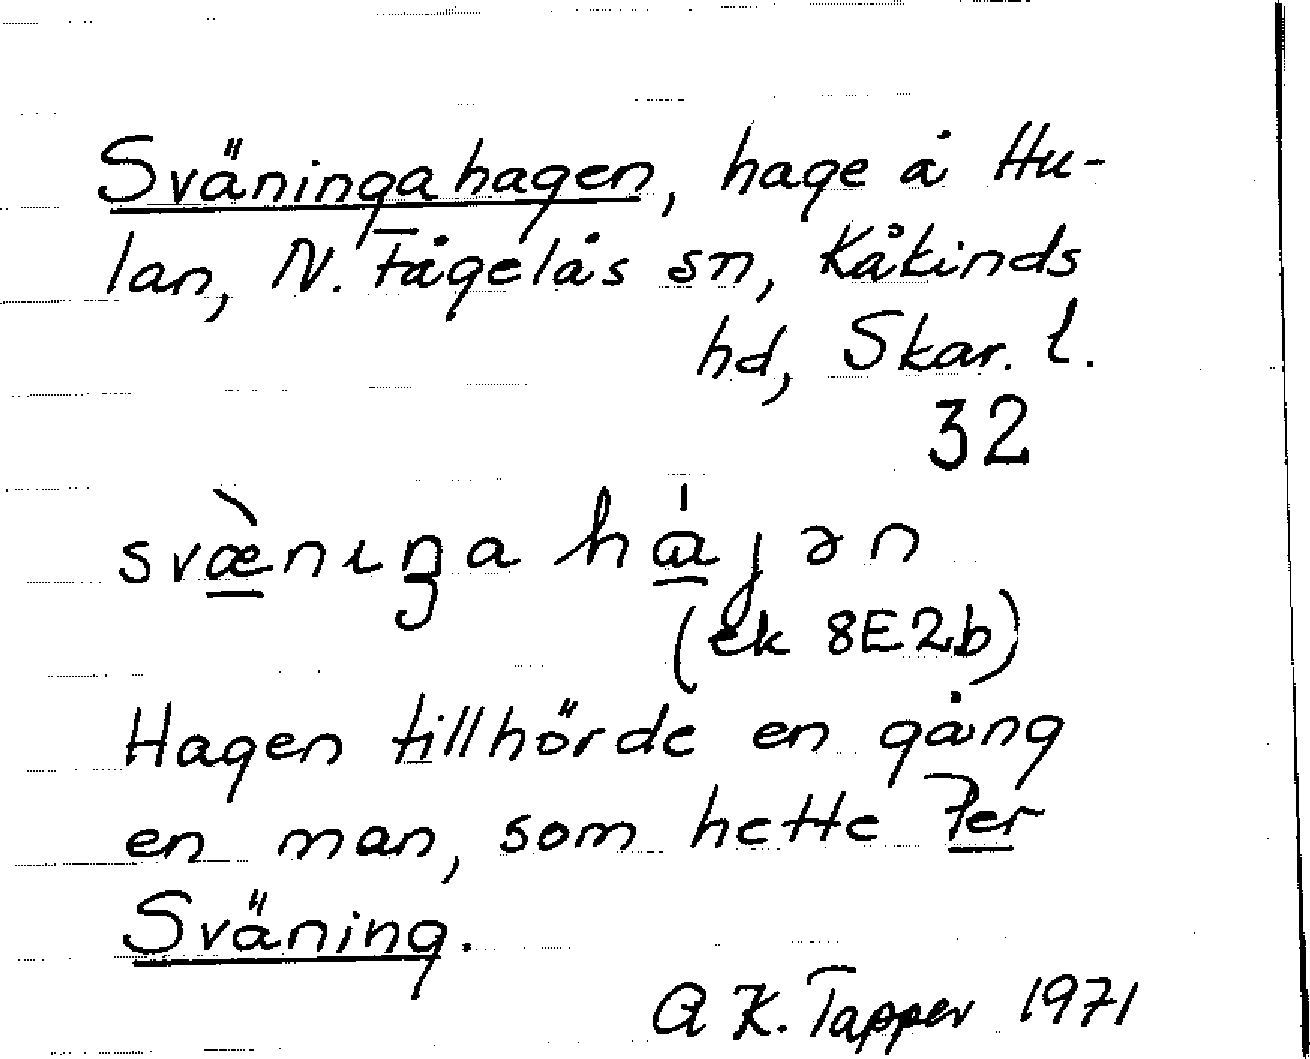 Sväningahagen, hage å Hu-
lan, N. Fågelås sn, Kåkinds
hd, Skar. l.
32
svæ̀nıŋa há̱jən
(ek 8E2b)
Hagen tillhörde en gång
en man, som hette Per
Sväning.
A K. Tapper 1971